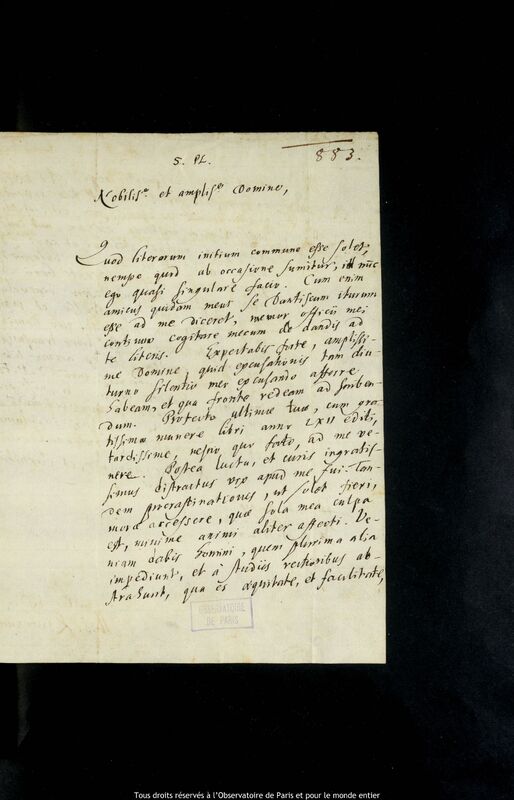 883.
5. PL.
Nobiliss.e et ampliss.e Domine,
Quod literarum initium commune esse solet,
nempe quod ab occasione sumitur, id nūc
ego quasi singulare facio. Cum enim
amicus quidam meus se Dantiscum iturum
esse ad me diceret, memor officii mei
continuo cogitare mecum de dandis ad
te literis. Expectabis forte, amplissi-
me Domine, quid excusationis tam diu-
turno silentio meo excusando afferre
habeam, et qua fronte redeam ad scriben-
dum. Profecto ultimæ tuæ, cum gra-
tissimo munere libri anno LXII editi,
tardissime, nescio quo fato, ad me ve-
nere. Postea luctu, et curis ingratis-
simus distractus vix apud me fui: tan-
dem procrastinationis, ut solet fieri,
moræ accessere, quæ sola mea culpa
est, minime animi aliter affecti. Ve-
niam dabis homini, quem plurima alia
impediunt, et à studiis rectioribus ab-
strahunt, qua es æquitate, et facilitate,
OBSERVATOIRE
DE PARIS
Tous droits réservés à l'Observatoire de Paris et pour le monde entier